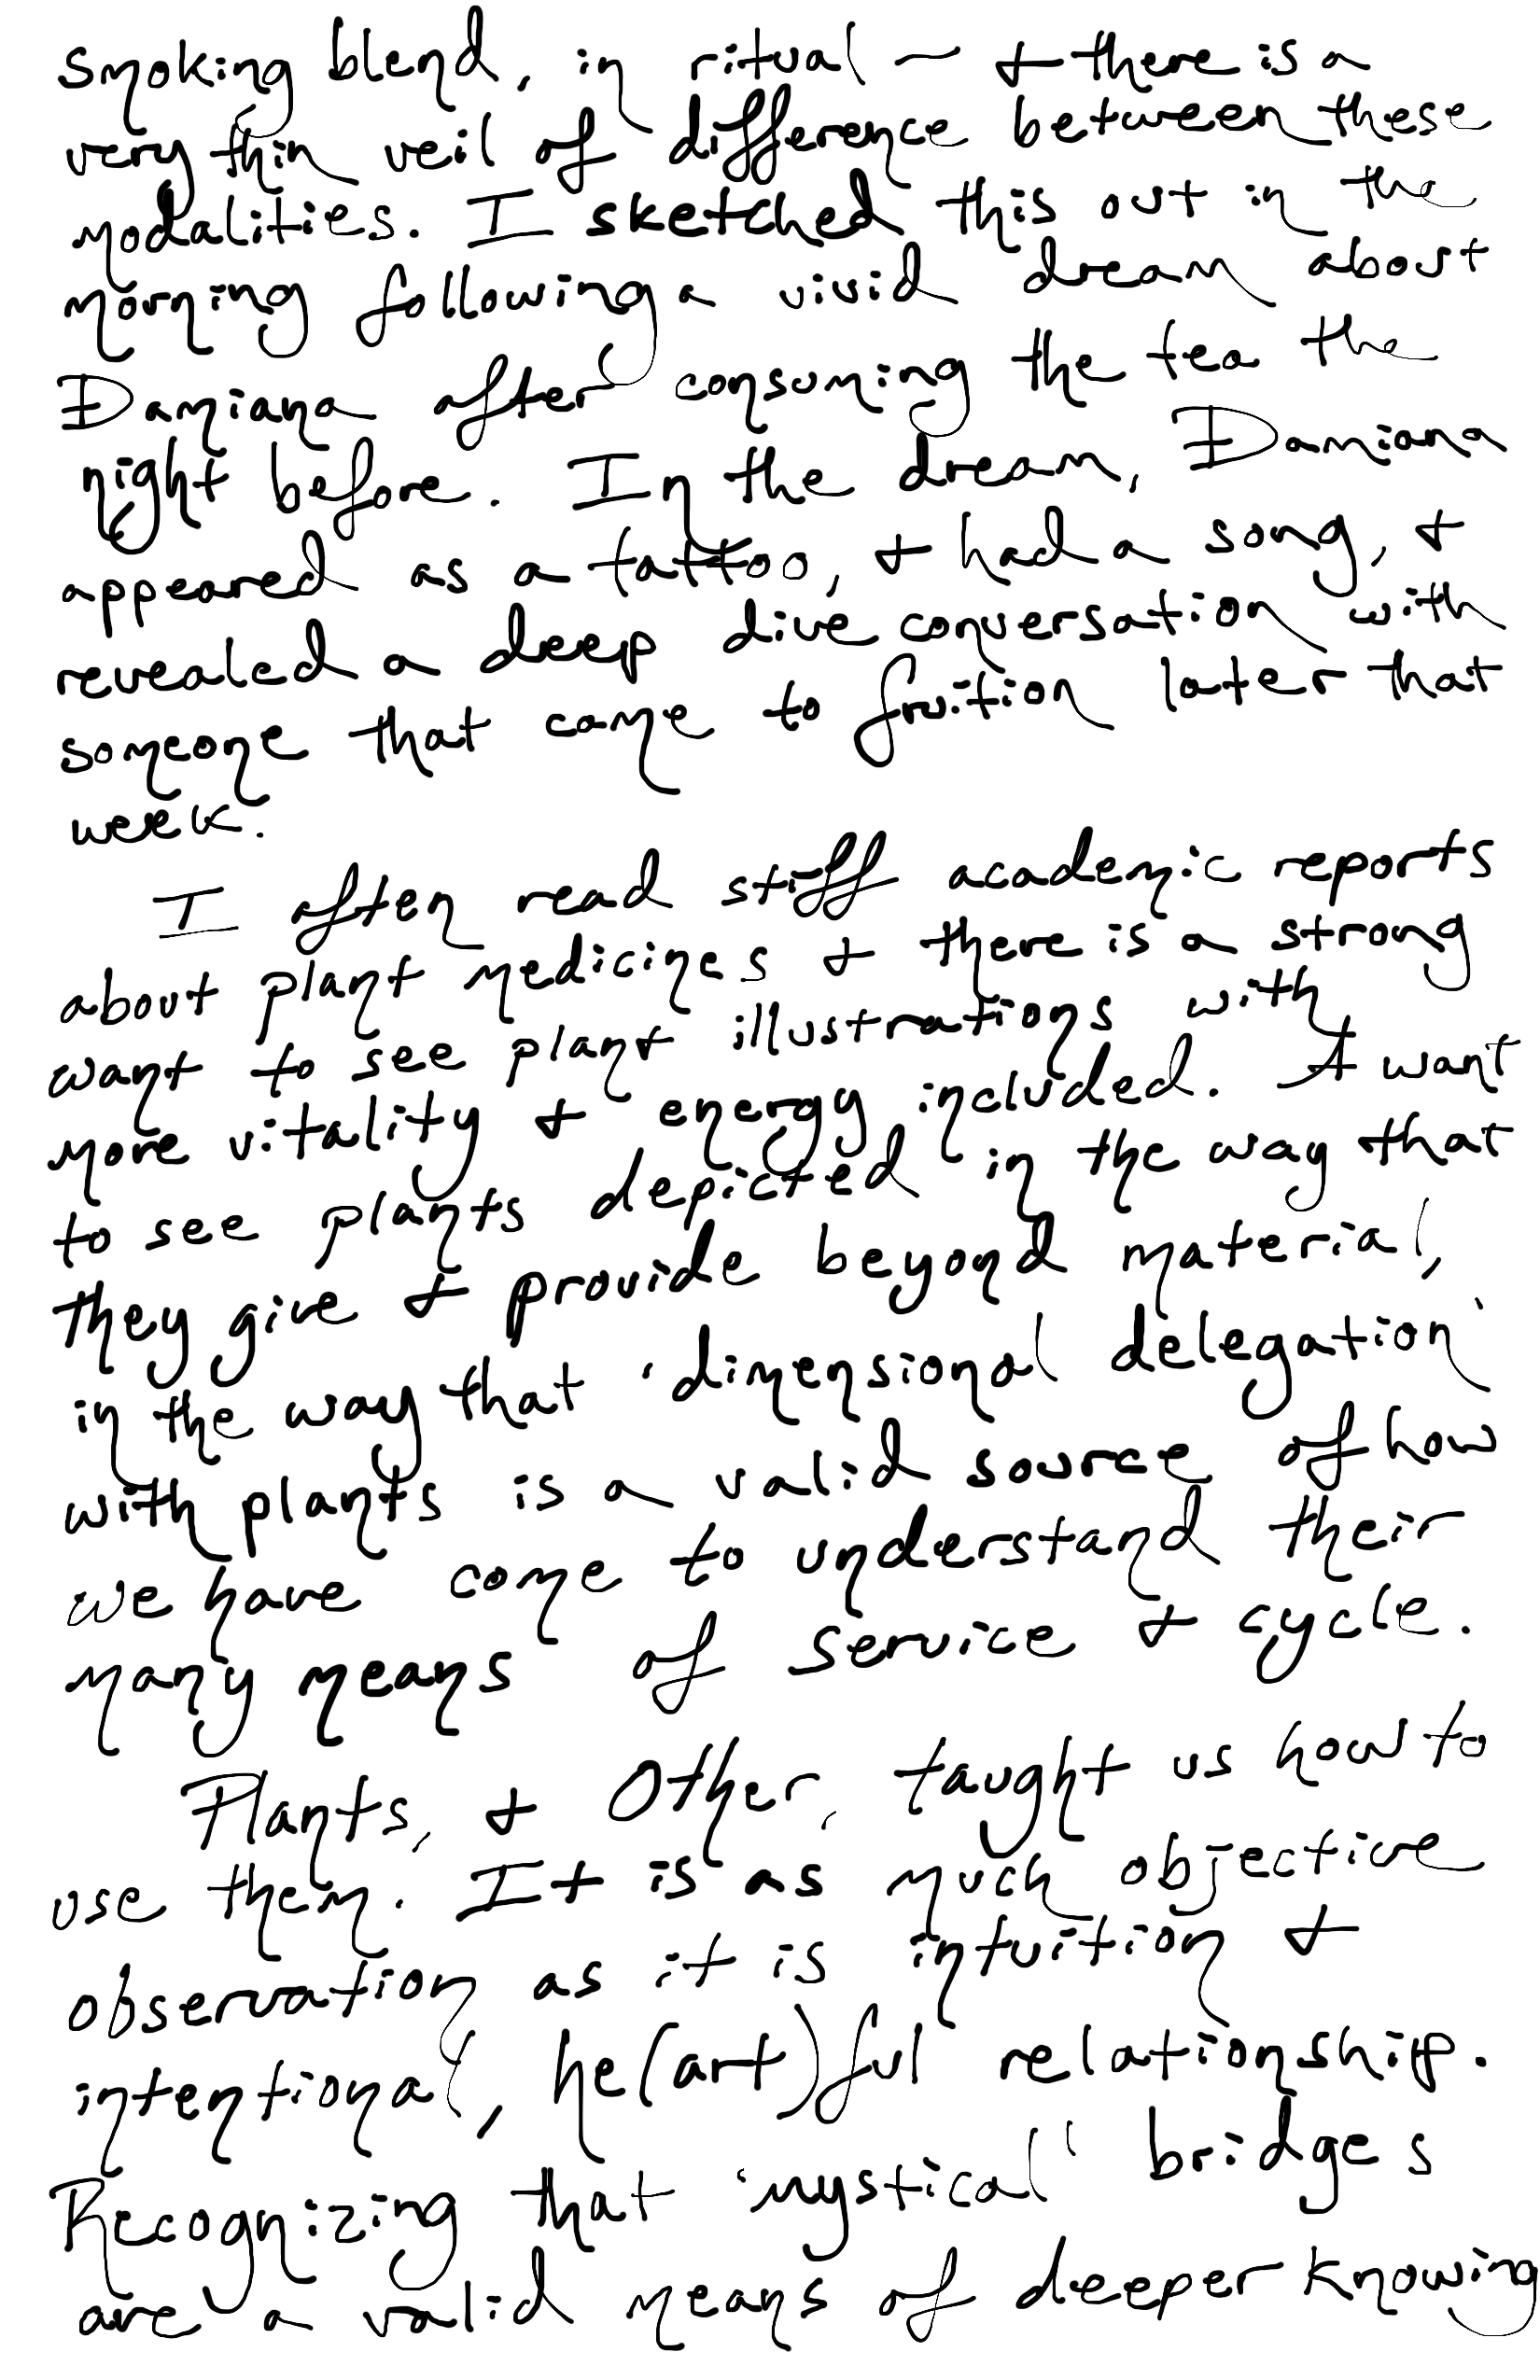 smoking blend, in ritual ~ + there is a
very thin veil of difference between these
modalities. I sketched this out in the
morning following a vivid dream about
Damiana after consuming the tea the
night before. In the dream, Damiana
appeared as a tattoo, + had a song, +
revealed a deep dive conversation with
someone that came to fruition later that
week.
I often read stiff academic reports
about plant medicines + there is a strong
want to see plant illustrations with
more vitality + energy included. I want
to see plants depicted in the way that
they give + provide beyond material,
in the way that 'dimensional delegation'
with plants is a valid source of how
we have come to understand their
many means of service + cycle.
Plants, + Other, taught us how to
use them. It is as much objective
observation as it is intuition +
intentional, he(art)ful relationship.
Recognizing that 'mystical' bridges
are a valid means of deeper knowing